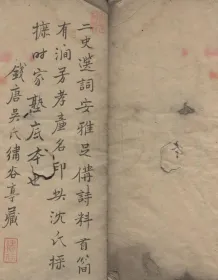 二史選詞安雅足備詩料首簡
有澗芳孝廉名印與沈氏採
採時家塾底本也
錢唐吳氏繡谷亭藏